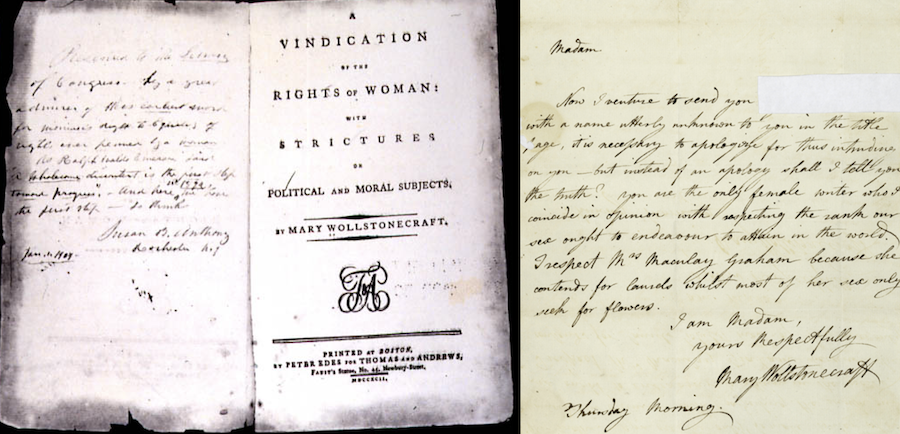 Presented to the Library
of Congress by a great
admirer of this earliest
for woman's right to Equality of
rights ever penned by a woman
As Ralph Waldo Emerson said
"A Wholesome discontent is the first step
toward progress". And here in 1792 we have
the first step — so thinks
Susan B. Anthony
Rochester N.Y.
Jan. 1. 1904
A
VINDICATION
OF THE
RIGHTS OF WOMAN:
WITH
STRICTURES
ON
POLITICAL AND MORAL SUBJECTS,
BY MARY WOLLSTONECRAFT.
PRINTED AT BOSTON,
BY PETER EDES FOR THOMAS AND ANDREWS,
FAUST'S Statue, No. 45, Newbury-Street,
MDCCXCII.
Madam.
Now I venture to send you
with a name utterly unknown to you in the title
page, it is necessary to apologise for thus intruding
on you — but instead of an apology shall I tell you
the truth? you are the only female writer who I
coincide in opinion with respecting the rank our
sex ought to endeavour to attain in the world.
I respect Mrs Macaulay Graham because she
contends for laurels whilst most of her sex only
seek for flowers.
I am Madam,
yours Respectfully
Mary Wollstonecraft
Thursday Morning.